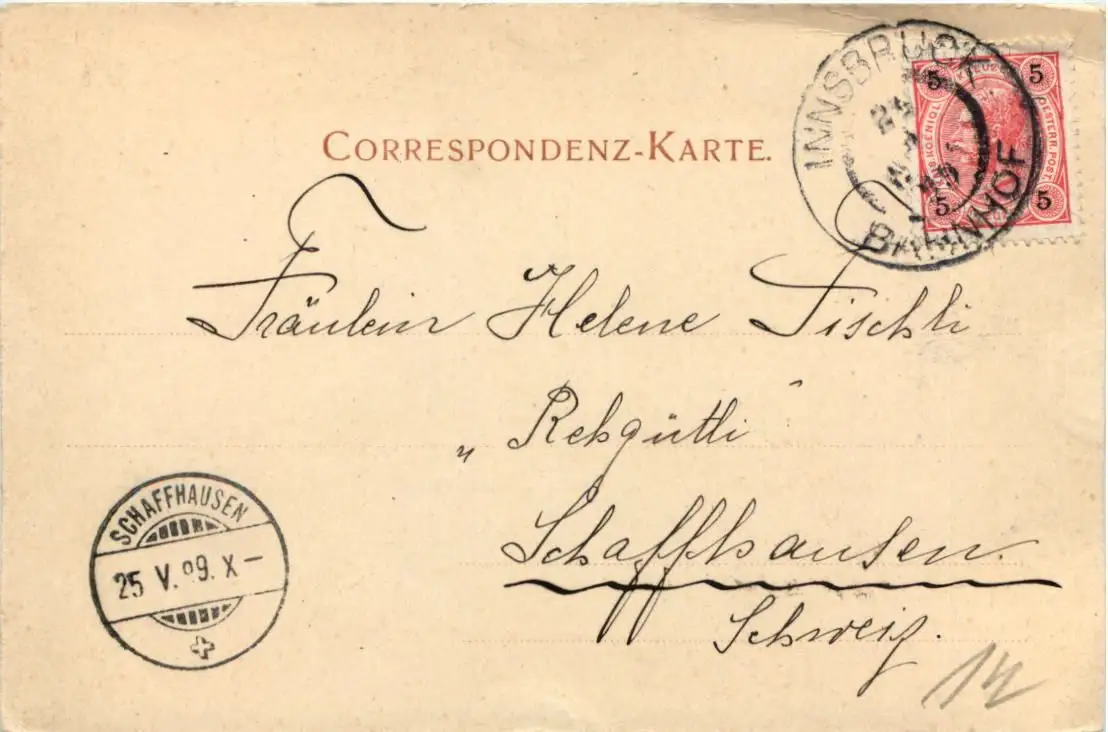 CORRESPONDENZ-KARTE.
INNSBRUCK
BAHNHOF
5 5
5 5
Fräulein Helene Tischli
„Rebgütli"
Schaffhausen.
Schweiz.
SCHAFFHAUSEN
25 V. 99. X-
14